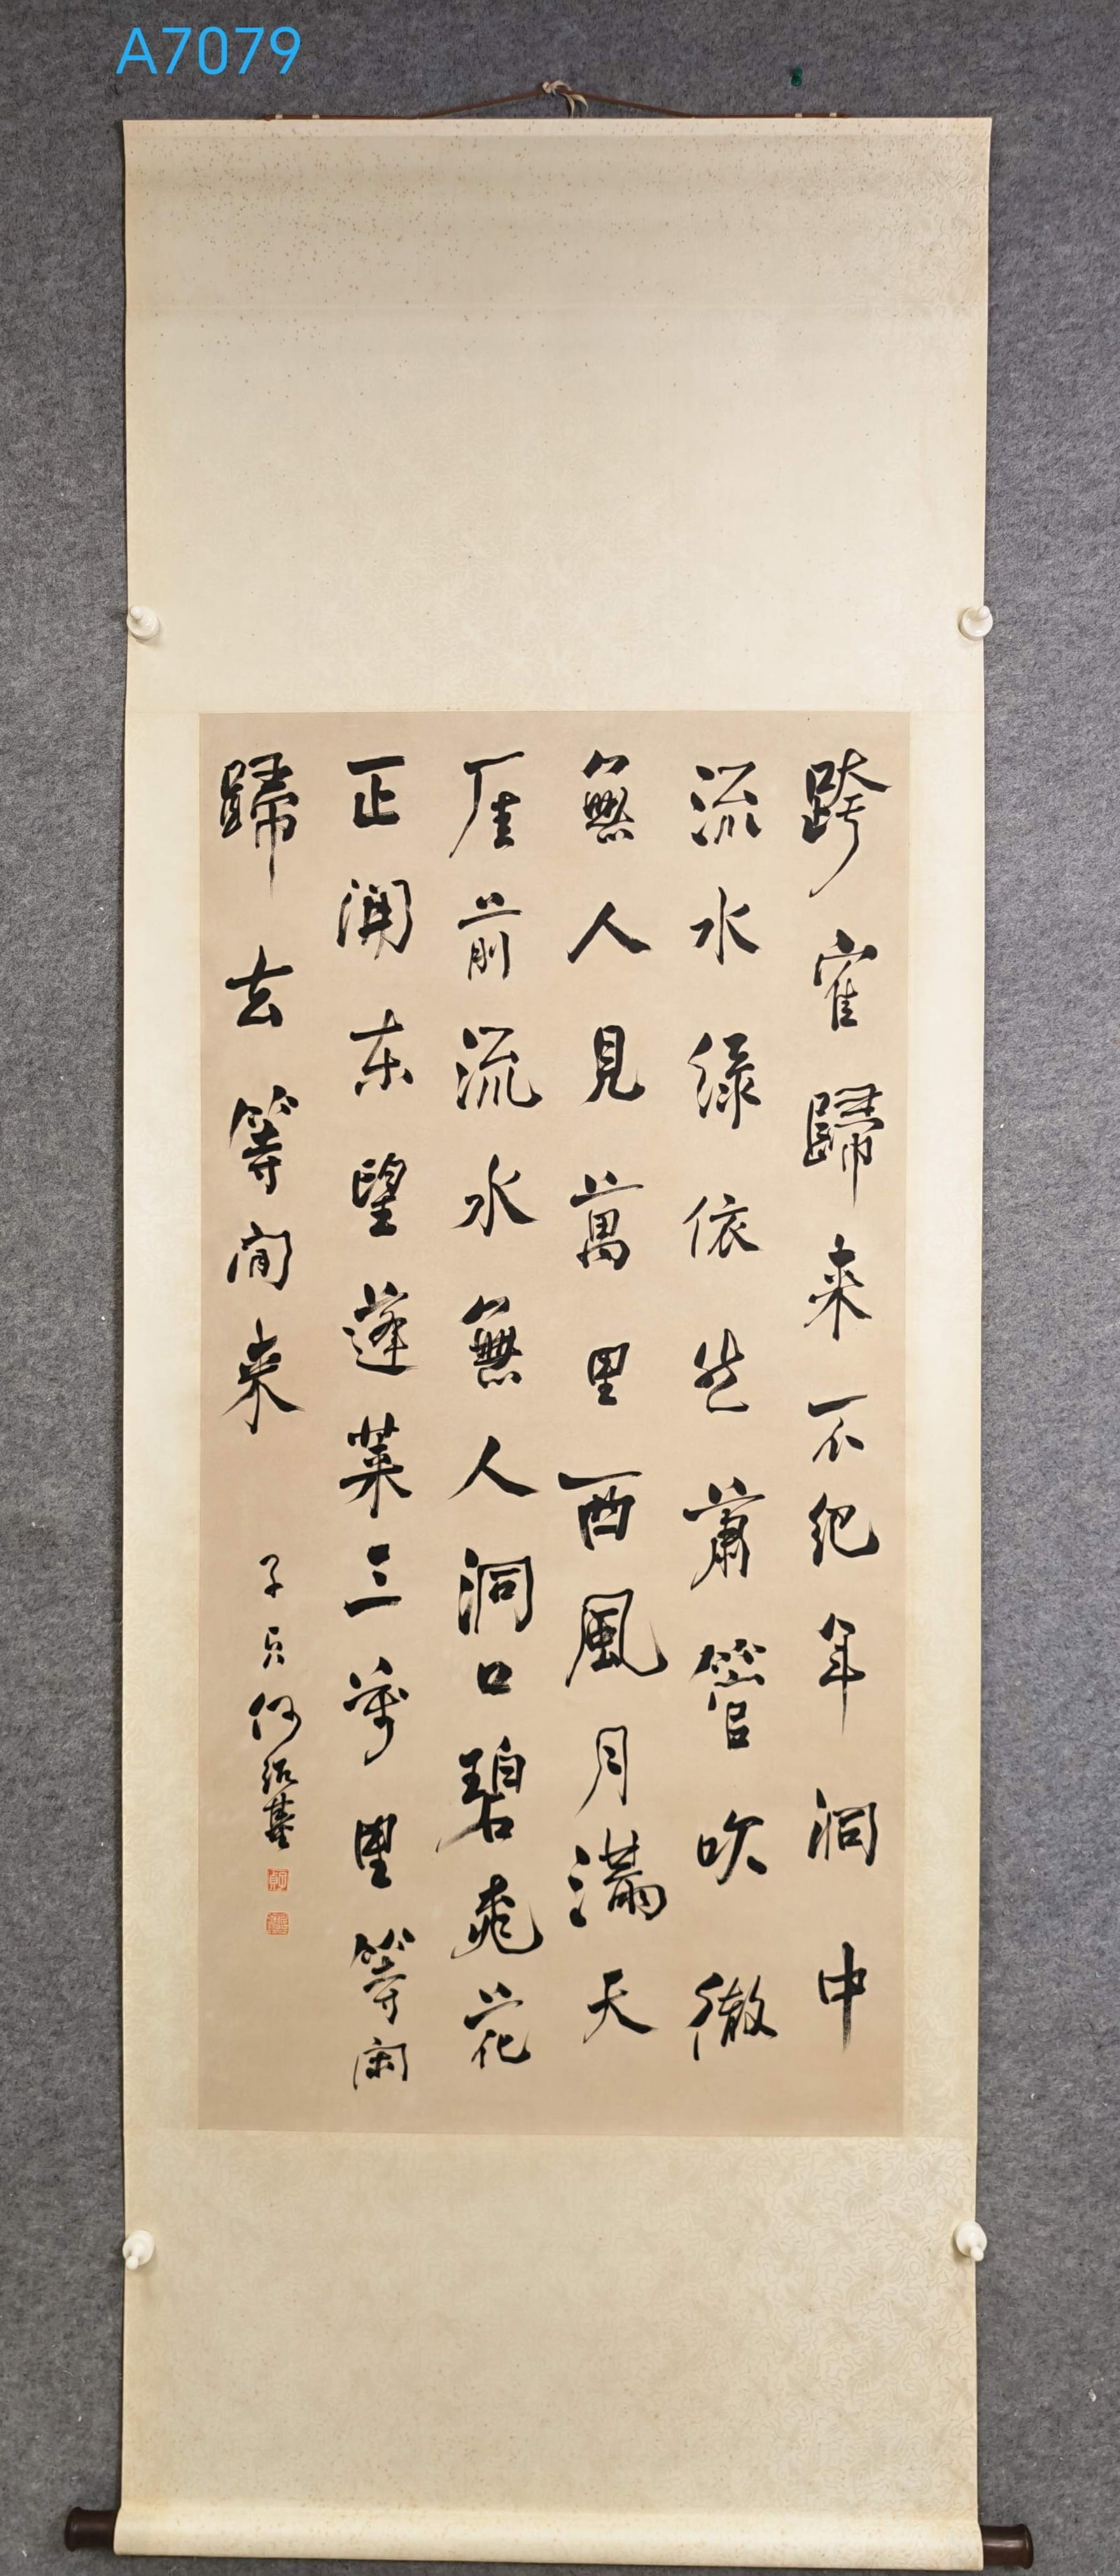 A7079
跨隺歸来不紀年洞中
流水緑依然蕭管吹徹
無人見萬里西風月滿天
厓前流水無人洞口碧桃花
正開东望蓬萊三萬里等閑
歸去等閒来
子貞何紹基